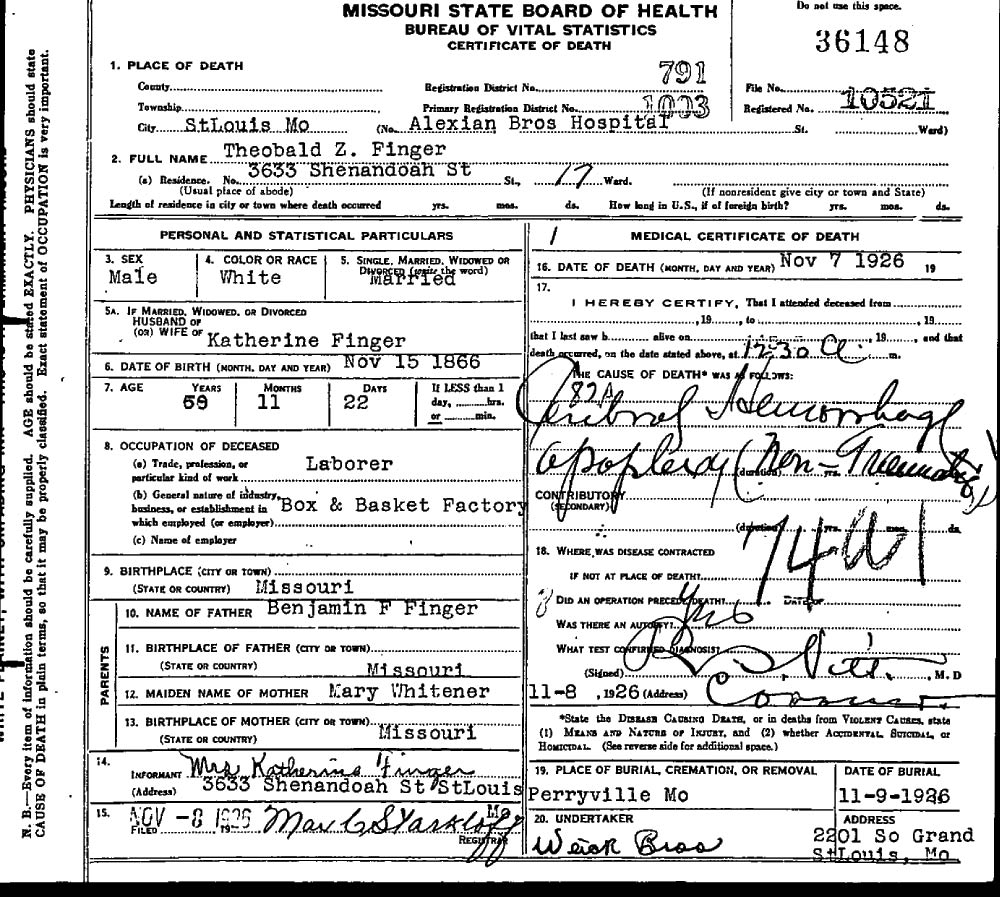 MISSOURI STATE BOARD OF HEALTH
BUREAU OF VITAL STATISTICS
CERTIFICATE OF DEATH
Do not use this space.
36148
1. PLACE OF DEATH
County
Registration District No. 791
File No.
Township
Primary Registration District No. 1003
Registered No. 10521
City StLouis Mo (No. Alexian Bros Hospital St. Ward)
2. FULL NAME Theobald Z. Finger
(a) Residence. No. 3633 Shenandoah St St., 17 Ward.
(Usual place of abode) (If nonresident give city or town and State)
Length of residence in city or town where death occurred yrs. mos. ds. How long in U.S., if of foreign birth? yrs. mos. ds.
PERSONAL AND STATISTICAL PARTICULARS
3. SEX
Male
4. COLOR OR RACE
White
5. SINGLE, MARRIED, WIDOWED OR
DIVORCED (write the word)
Married
5A. IF MARRIED, WIDOWED, OR DIVORCED
HUSBAND OF
(OR) WIFE OF Katherine Finger
6. DATE OF BIRTH (MONTH, DAY AND YEAR) Nov 15 1866
7. AGE YEARS MONTHS DAYS If LESS than 1
day, hrs.
or min.
59 11 22
8. OCCUPATION OF DECEASED
(a) Trade, profession, or
particular kind of work Laborer
(b) General nature of industry,
business, or establishment in
which employed (or employer) Box & Basket Factory
(c) Name of employer
9. BIRTHPLACE (CITY OR TOWN)
(STATE OR COUNTRY) Missouri
PARENTS
10. NAME OF FATHER Benjamin F Finger
11. BIRTHPLACE OF FATHER (CITY OR TOWN)
(STATE OR COUNTRY) Missouri
12. MAIDEN NAME OF MOTHER Mary Whitener
13. BIRTHPLACE OF MOTHER (CITY OR TOWN)
(STATE OR COUNTRY) Missouri
14.
INFORMANT Mrs Katherine Finger
(Address) 3633 Shenandoah St StLouis
Mo
15.
FILED NOV -8 1926 19 Max C Starkloff
REGISTRAR
MEDICAL CERTIFICATE OF DEATH
16. DATE OF DEATH (MONTH, DAY AND YEAR) Nov 7 1926 19
17.
I HEREBY CERTIFY, That I attended deceased from
, 19 , to , 19
that I last saw h alive on , 19 , and that
death occurred, on the date stated above, at 12:30 a. m.
THE CAUSE OF DEATH* WAS AS FOLLOWS:
82A
Ceribral Hemorrhage
Apoplexy (Non-Traumatic)
(duration)
CONTRIBUTORY
(SECONDARY)
(duration) yrs. mos. ds.
74W1
18. WHERE WAS DISEASE CONTRACTED
IF NOT AT PLACE OF DEATH?
DID AN OPERATION PRECEDE DEATH? DATE OF
WAS THERE AN AUTOPSY? Yes
WHAT TEST CONFIRMED DIAGNOSIS?
(Signed) , M. D
11-8 , 1926 (Address) Coroner
*State the DISEASE CAUSING DEATH, or in deaths from VIOLENT CAUSES, state
(1) MEANS AND NATURE OF INJURY, and (2) whether ACCIDENTAL, SUICIDAL, or
HOMICIDAL. (See reverse side for additional space.)
19. PLACE OF BURIAL, CREMATION, OR REMOVAL
Perryville Mo
DATE OF BURIAL
11-9-1926
20. UNDERTAKER
Weick Bros
ADDRESS
2201 So Grand
StLouis, Mo
N. B.—Every item of information should be carefully supplied. AGE should be stated EXACTLY. PHYSICIANS should state
CAUSE OF DEATH in plain terms, so that it may be properly classified. Exact statement of OCCUPATION is very important.